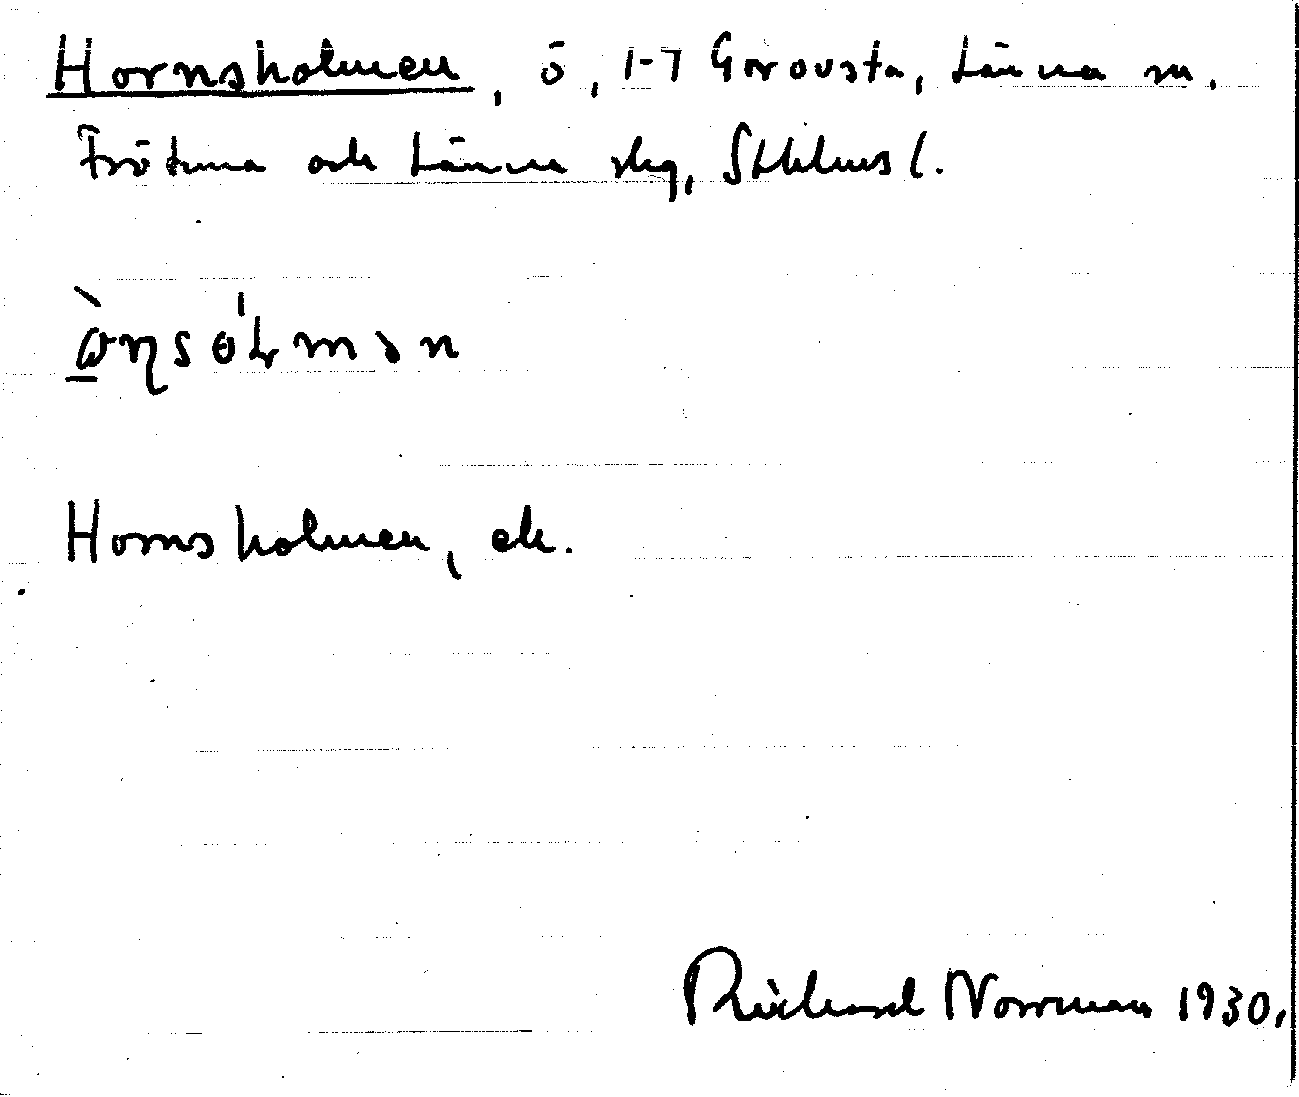 Hornsholmen, ö, 1-7 Gorovsta, Länna sn.
Frötuna och Länna skg, Sthlms l.
Hornsholmen, ek.
Richard Norrman 1930.